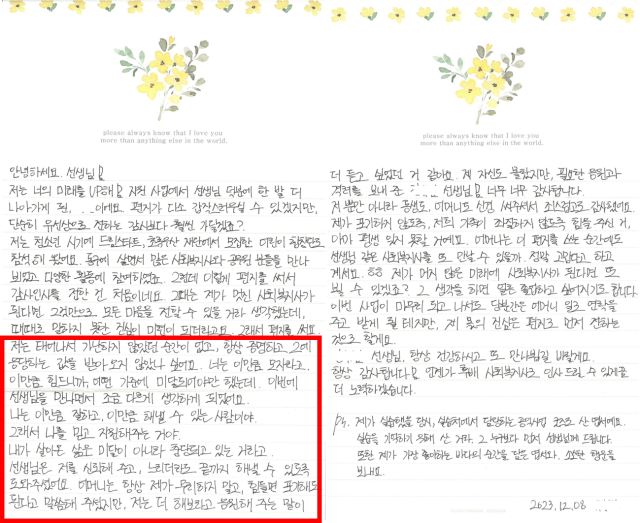 please always know that I love you
more than anything else in the world.
안녕하세요. 선생님
저는 너의 미래를 UP해 지원 사업에서 선생님 덕분에 한 발 더
나아가게 된, 이에요. 편지가 다소 갑작스러우실 수 있겠지만,
단순히 유선상으로 전하는 감사보다 훨씬 가닿겠죠?
저는 청소년 시기에 드림스타트, 초록우산 재단에서 모집한 어린이
참석해 왔어요. 동네에 살면서 많은 사회복지사와 공무원 분들을 만나
뵈었고 다양한 활동에 참여하였죠. 그런데 이렇게 편지를 써서
감사인사를 전한 건 처음이네요. 그때는 제가 멋진 사회복지사가
된다면 그것만으로 모든 마음을 전할 수 있을 거라 생각했는데,
때때로 말하지 못한 진심이 미련이 되더라고요. 그래서 편지를 써요.
저는 태어나서 가난하지 않았던 순간이 없고, 항상 증명하고 그에
응당하는 값을 받아오지 않았나 싶어요. 나는 이만큼 모자라고,
이만큼 힘드니까, 어떤 기준에 미달되어야만 했는데. 이번에
선생님을 만나면서 조금 다르게 생각하게 되었어요.
나는 이만큼 잘하고, 이만큼 해낼 수 있는 사람이야.
그래서 나를 믿고 지원해주는 거야.
내가 살아온 삶은 미달이 아니라 충당되고 있는 거라고.
선생님은 저를 신뢰해 주고, 느리더라도 끝까지 해낼 수 있도록
도와주셨어요. 어머니는 항상 제가 무리하지 말고, 힘들면 포기해도
된다고 말씀해 주셨지만, 저는 더 해보라고 응원해 주는 말이
더 듣고 싶었던 것 같아요. 제 자신도 몰랐지만, 필요한 응원과
격려를 보내 준 선생님 너무 너무 감사합니다.
저 뿐만 아니라 동생도, 어머니도 신경 써주셔서 죄스럽고도 감사해요.
제가 포기하지 않도록, 저희 가족이 좌절하지 않도록 힘을 주신 거,
아마 평생 잊지 못할 거예요. 어머니는 더 편지를 쓰는 순간에도
선생님 같은 사회복지사를 또 만날 수 있을까, 정말 고맙다고 하고
계셔요. ㅎㅎ 제가 머지 않은 미래에 사회복지사가 된다면 또
뵐 수 있겠죠? 그 생각을 하면 얼른 졸업하고 싶어지기도 합니다.
이번 사업이 마무리 되고 나서도 당분간은 어머니 일로 연락을
주고 받게 될 테지만, 제 몫의 진심은 편지로 먼저 전하는
것으로 할게요.
선생님, 항상 건강하시고 또 만나뵙길 바랄게요.
항상 감사합니다 언젠가 훌륭한 사회복지사로 인사 드릴 수 있게끔
더 노력하겠습니다.
P.S. 제가 실습했을 당시, 실습처에서 담당하는 공익사업 굿즈로 산 엽서예요.
실습을 기억하기 위해 산 거라, 그 누구보다 먼저 선생님께 드립니다.
또한 제가 가장 좋아하는 바다의 순간을 담은 엽서와, 소소한 행운을
보내요.
2023.12.08